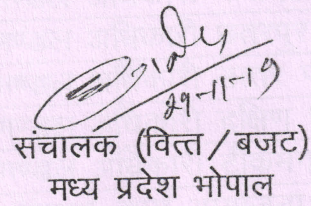 29-11-19
संचालक (वित्त / बजट)
मध्य प्रदेश भोपाल